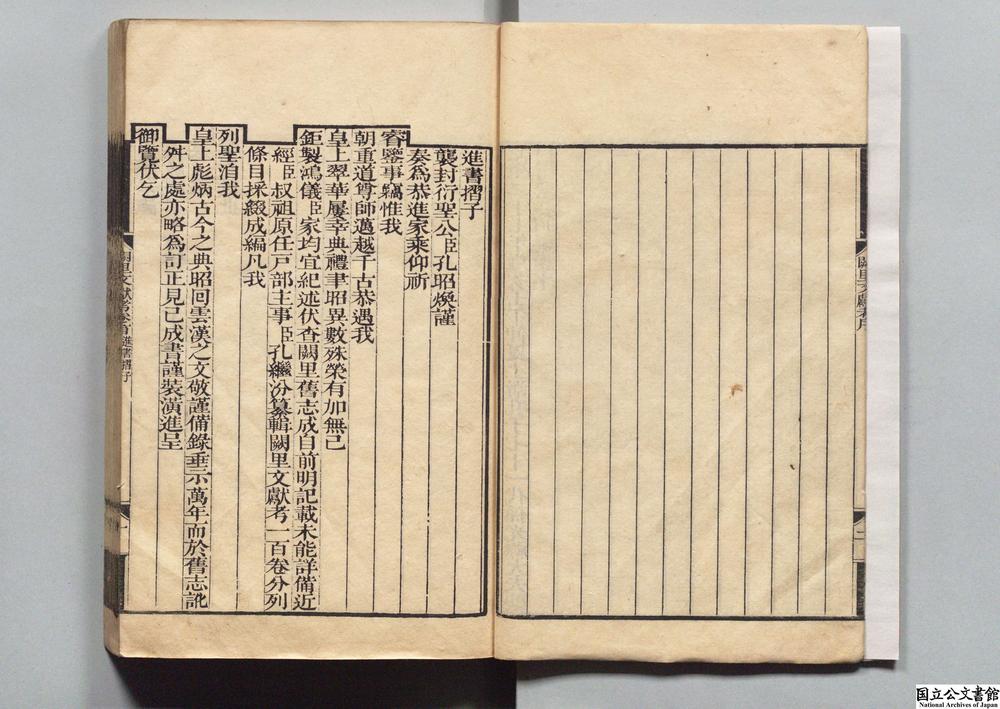 進書摺子
襲封衍聖公臣孔昭煥謹
奏為恭進家乘仰祈
睿鑒事竊惟我
朝重道尊師邁越千古恭遇我
皇上翠華屢幸典禮聿昭異數殊榮有加無已
鉅製鴻儀臣家均宜紀述伏查闕里舊志成自前明記載未能詳備近
經臣叔祖原任戸部主事臣孔繼汾纂輯闕里文獻考一百卷分列
條目採綴成編凡我
列聖洎我
皇上彪炳古今之典昭回雲漢之文敬謹備錄垂示萬年而於舊志訛
舛之處亦略為訂正見已成書謹裝潢進呈
御覽伏乞
闕里文獻考
進書摺子
一
闕里文獻考序
二
国立公文書館
National Archives of Japan